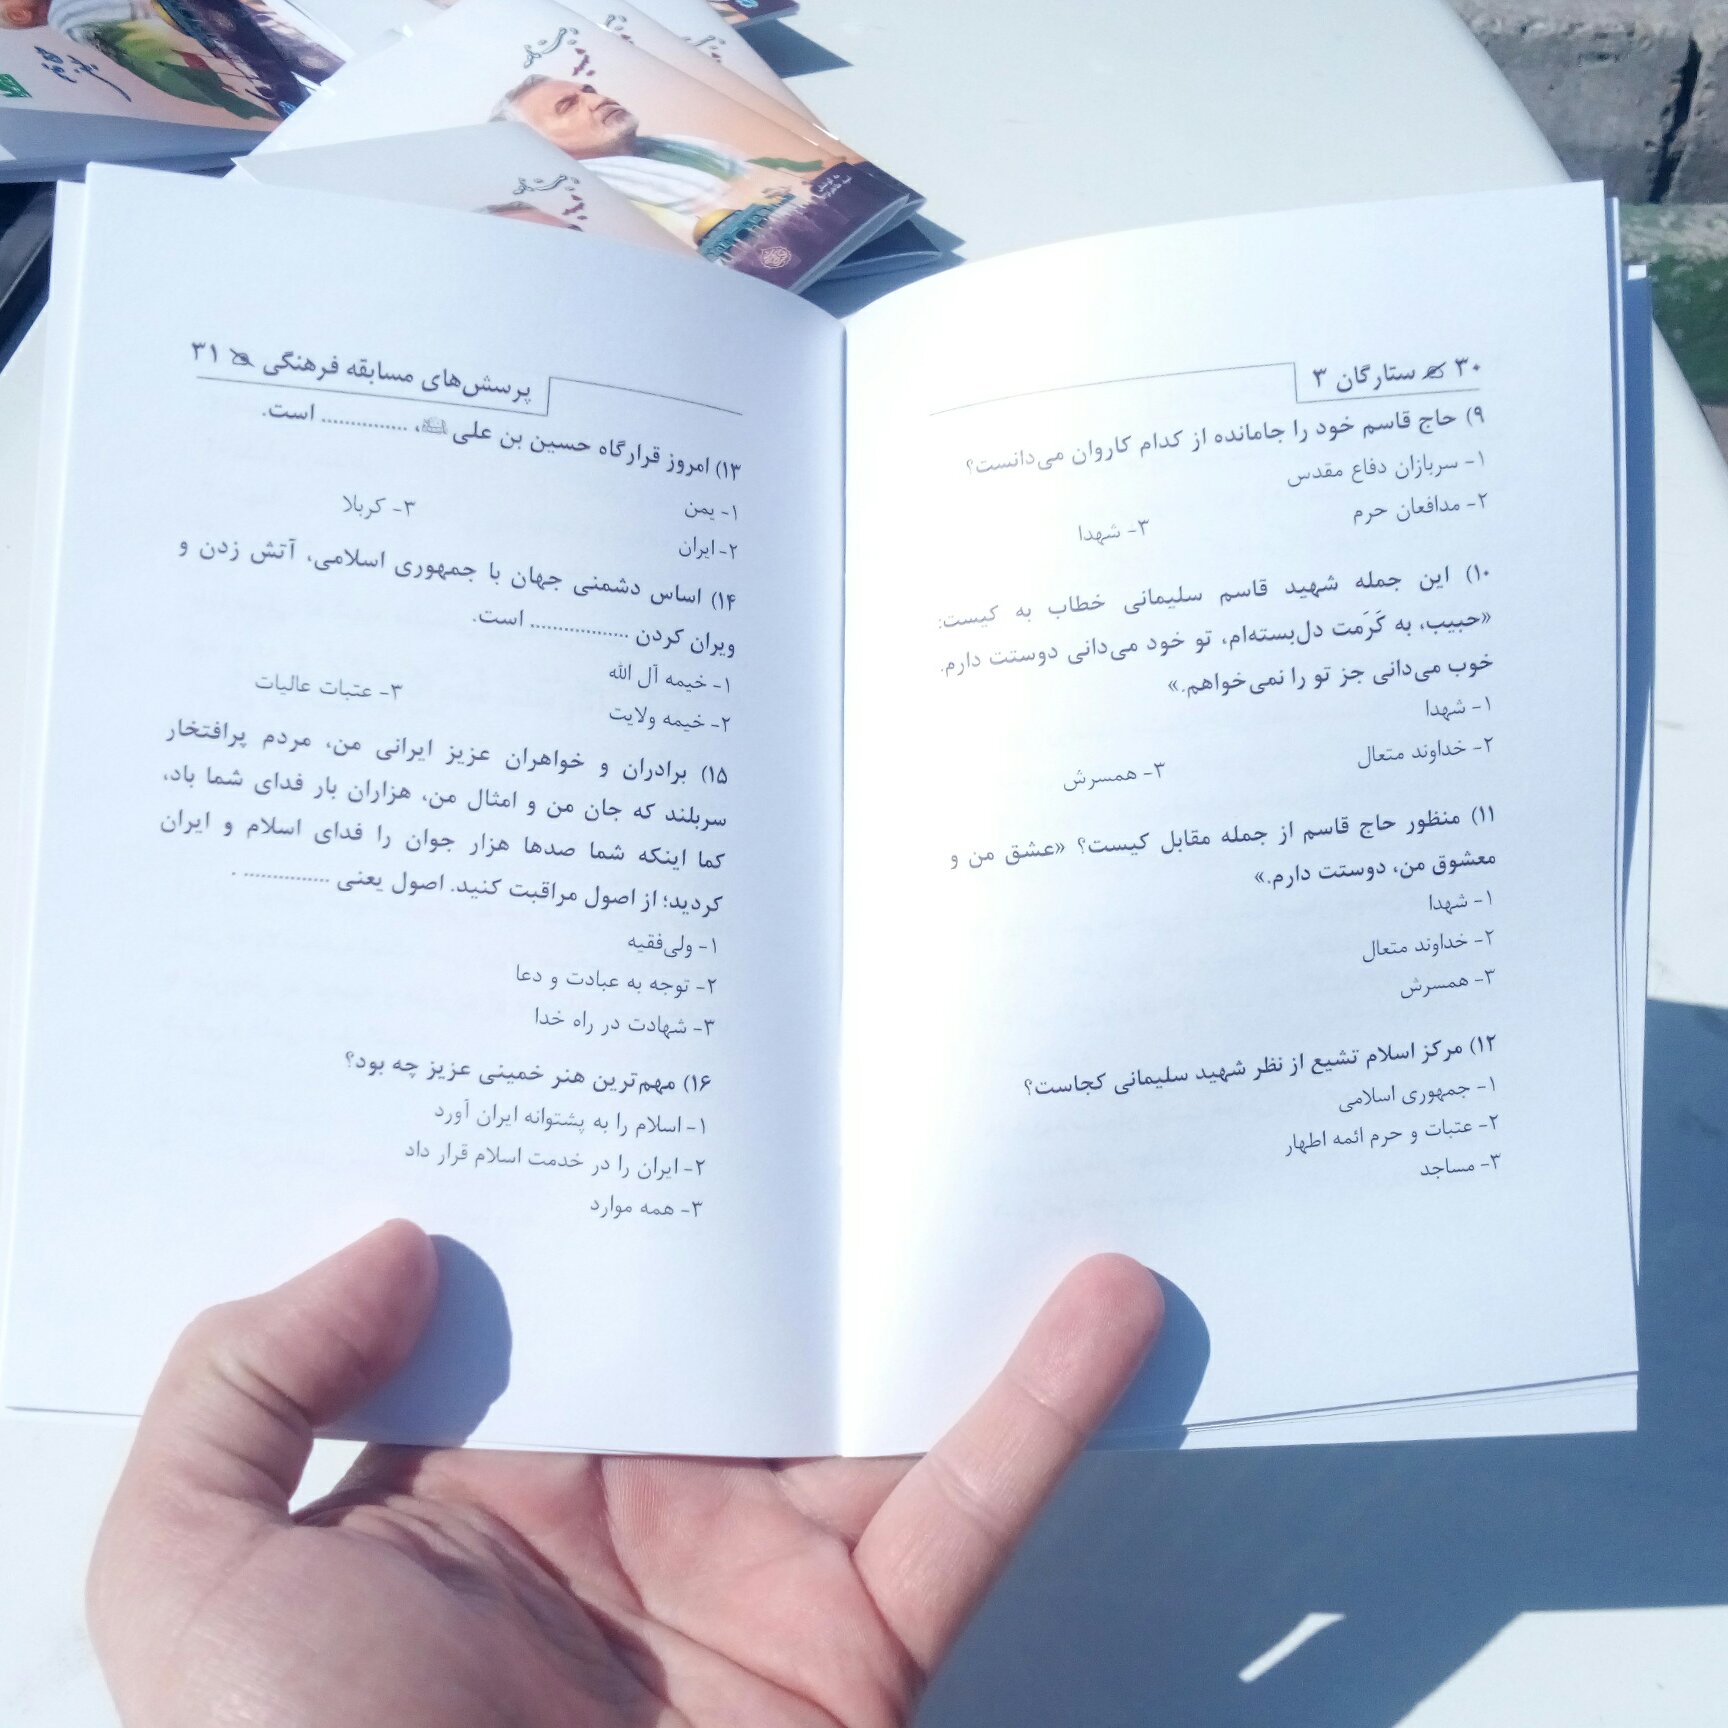 ۳۰ ستارگان ۳
۹) حاج قاسم خود را جامانده از کدام کاروان می‌دانست؟
۱- سربازان دفاع مقدس
۲- مدافعان حرم
۳- شهدا
۱۰) این جمله شهید قاسم سلیمانی خطاب به کیست:
«حبیب، به کَرَمَت دل‌بسته‌ام، تو خود می‌دانی دوستت دارم.
خوب می‌دانی جز تو را نمی‌خواهم.»
۱- شهدا
۲- خداوند متعال
۳- همسرش
۱۱) منظور حاج قاسم از جمله مقابل کیست؟ «عشق من و
معشوق من، دوستت دارم.»
۱- شهدا
۲- خداوند متعال
۳- همسرش
۱۲) مرکز اسلام تشیع از نظر شهید سلیمانی کجاست؟
۱- جمهوری اسلامی
۲- عتبات و حرم ائمه اطهار
۳- مساجد
پرسش‌های مسابقه فرهنگی ۳۱
۱۳) امروز قرارگاه حسین بن علی، ............... است.
۱- یمن
۲- ایران
۳- کربلا
۱۴) اساس دشمنی جهان با جمهوری اسلامی، آتش زدن و
ویران کردن ................. است.
۱- خیمه آل الله
۲- خیمه ولایت
۳- عتبات عالیات
۱۵) برادران و خواهران عزیز ایرانی من، مردم پرافتخار
سربلند که جان من و امثال من، هزاران بار فدای شما باد،
کما اینکه شما صدها هزار جوان را فدای اسلام و ایران
کردید؛ از اصول مراقبت کنید. اصول یعنی ............... .
۱- ولی‌فقیه
۲- توجه به عبادت و دعا
۳- شهادت در راه خدا
۱۶) مهم‌ترین هنر خمینی عزیز چه بود؟
۱- اسلام را به پشتوانه ایران آورد
۲- ایران را در خدمت اسلام قرار داد
۳- همه موارد